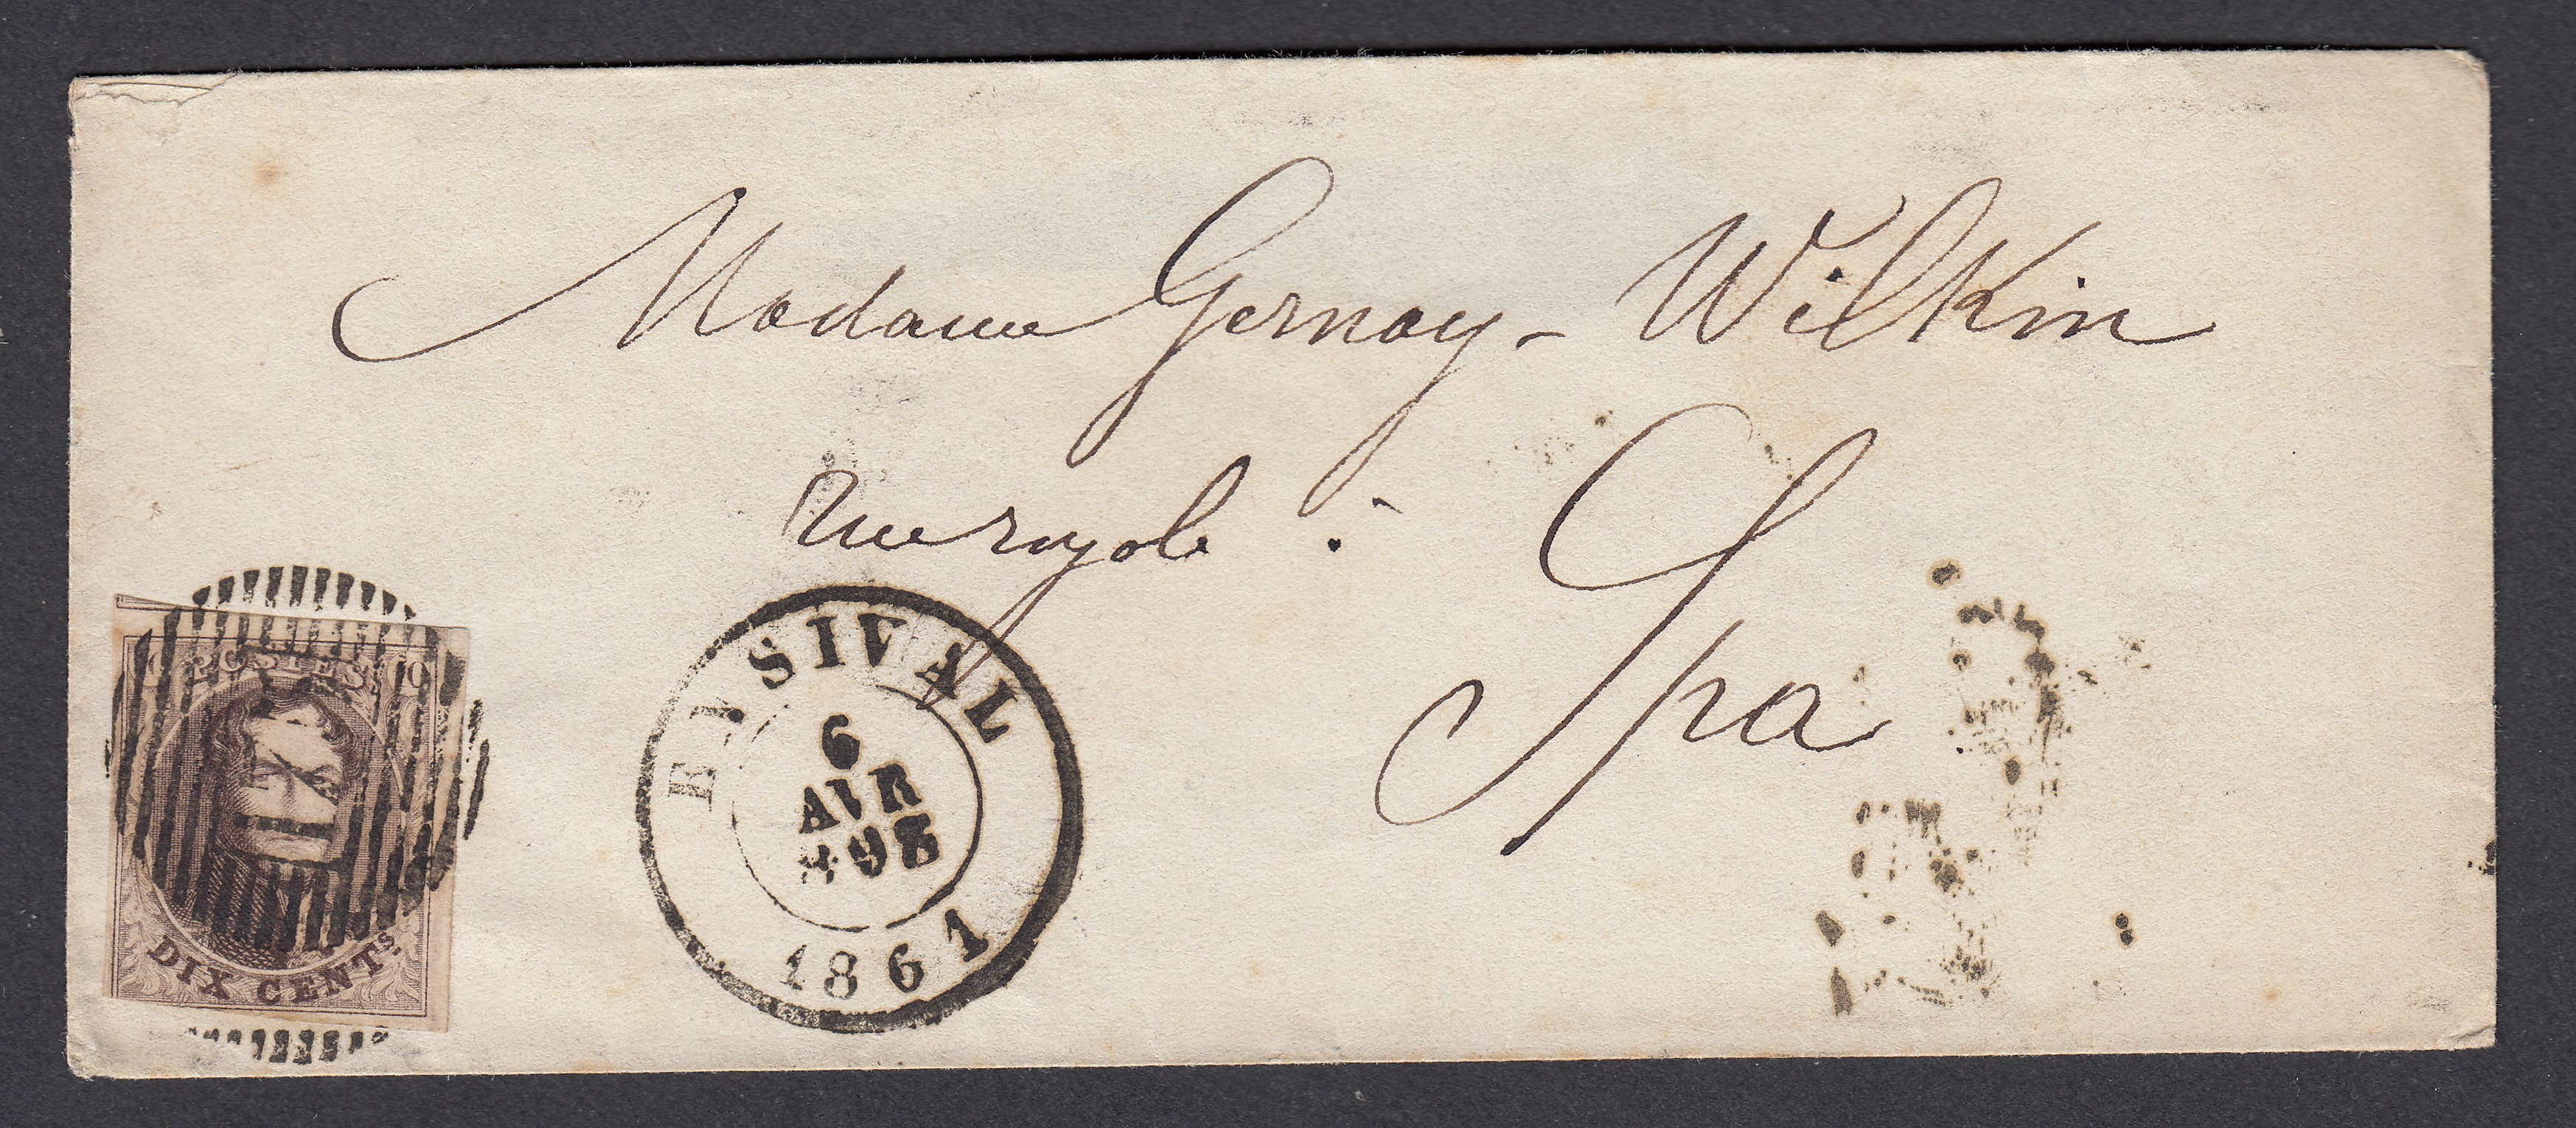 Madame Gernay - Wilkin
Rue royale
Spa
POSTES
10
DIX CENTS.
ENSIVAL
6
AVR
1861